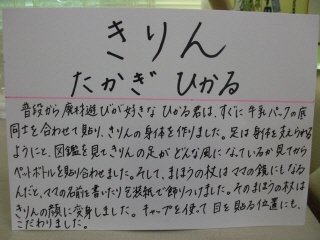 きりん
たかぎ ひかる
普段から廃材遊びが好きな ひかる君は、すぐに牛乳パックの底
同士を合わせて貼り、きりんの身体を作りました。足は身体を支えられる
ようにと、図鑑を見てきりんの足が どんな風になっているか見てから
ペットボトルを貼り合わせました。そして、まほうの杖は ママの鏡にもなる
んだと、ママの名前を書いたり包装紙で飾りつけました。そのまほうの杖は
きりんの顔に変身しました。キャップを使って 目を貼る位置にも、
こだわりました。